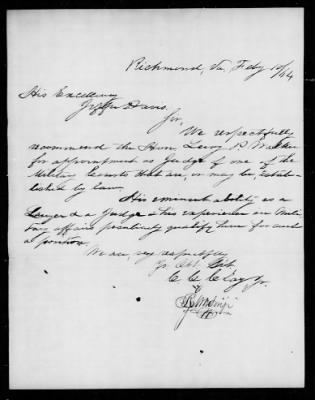 Richmond, Va, Feby 10/64
His Excellency
Jeffn Davis.
Sir,
We respectfully
recommend the Hon. Leroy P. Walker
for appointment as Judge of one of the
Military Courts that are, or may be, estab-
lished by law.
His eminent ability as a
Lawyer & a Judge & his experience in Mili-
tary affairs positively qualify him for such
a position.
We are, very respectfully
Yr. Obt. Svts
C. C. Clay Jr.